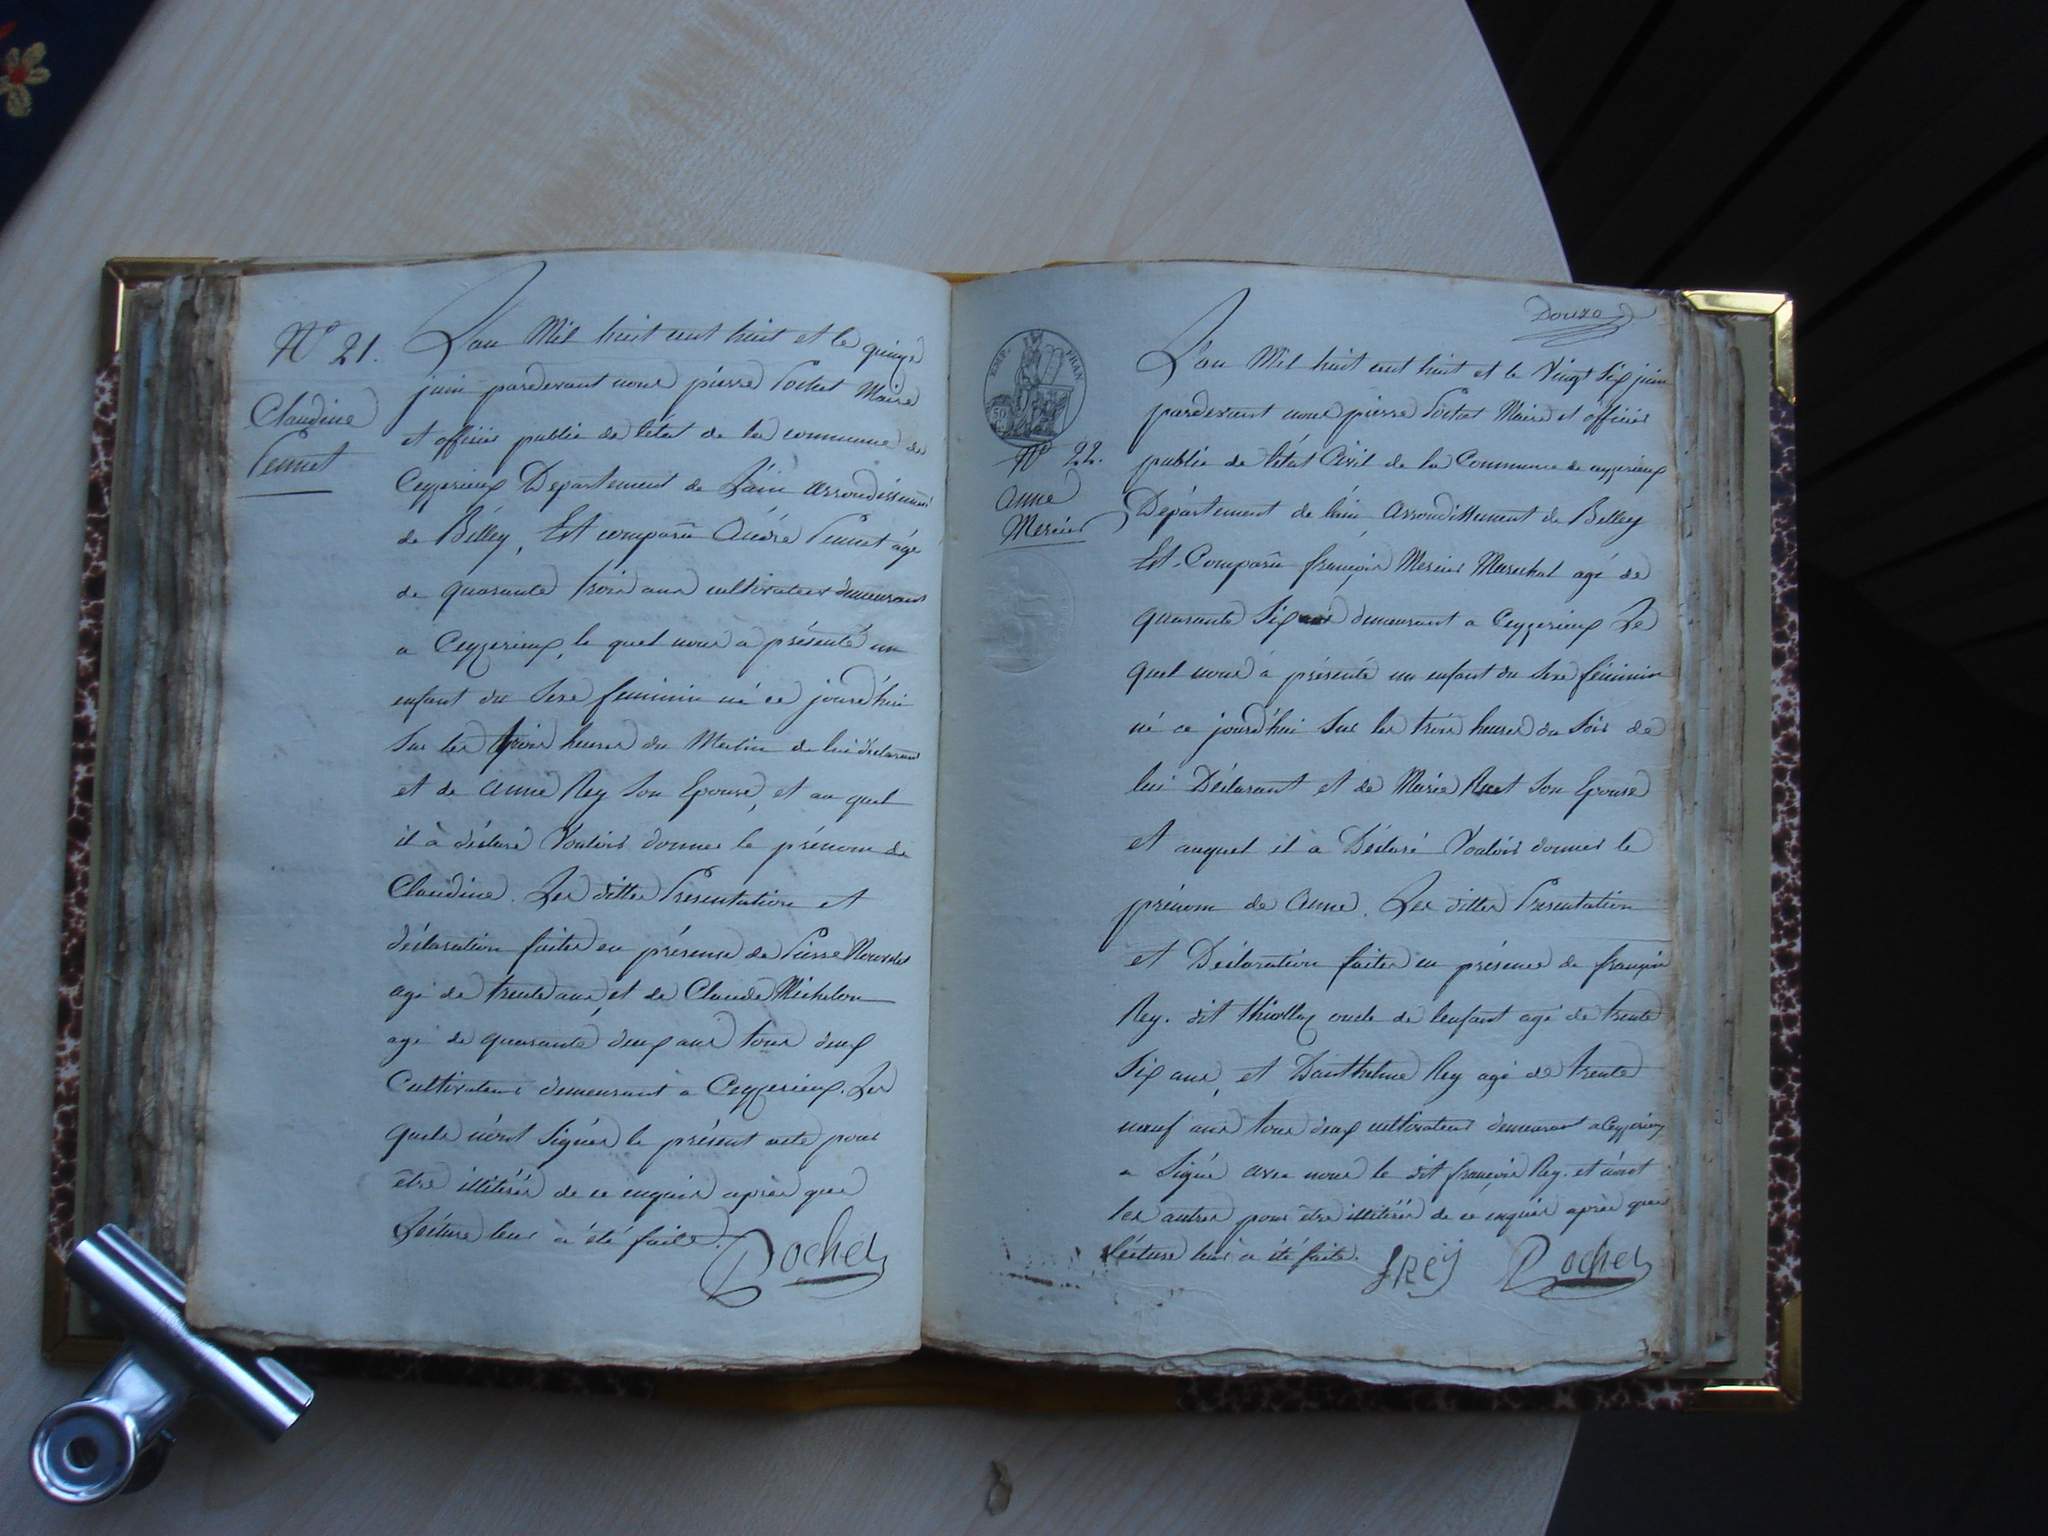 N° 21.
Claudine
Pennet
L'an Mil huit cent huit et le quinze
juin pardevant nous pierre Pochet Maire
et officier public de l'état de la commune de
Ceyzerieux Departement de L'ain arrondissement
de Bélley, Est comparû André Pennet agé
de quarante trois ans cultivateur demeurant
a Ceyzerieux, le quel nous a présenté un
enfant du Sexe feminin né ce jourd'hui
Sur les trois heures du Matin de lui déclarant
et de anne Rey Son Epouse, et au quel
il à déclaré Vouloir donner le prénom de
Claudine. Les dittes Presentation et
déclaration faites en présence de Pierre
agé de trente ans, et de Claude Michelon
agé de quarante deux ans tous deux
Cultivateurs demeurant a Ceyzerieux. Les
quels n'ont Signés le présent acte pour
être illitérés de ce enquis après que
Lécture leur à été faite.
Pochet
Douze
EMP. FRAN
50
N° 22.
anne
Mercier
L'an Mil huit cent huit et le Vingt Six juin
pardevant nous pierre Pochet Maire et officier
public de l'état Civil de la Commune de ceyzerieux
Département de l'ain Arrondissement de Belley
Est Comparû françois Mercier Marechal agé de
quarante Six ans demeurant a Ceyzerieux Le
quel nous à présenté un enfant du Sexe féminin
né ce jourd'hui Sur les trois heures du Soir de
lui Déclarant et de Marie Ruet Son Epouse
et auquel il à Déclaré Vouloir donner le
prénom de Anne. Les dittes Presentation
et Déclaration faites en présence de françois
Rey. dit thiollex oncle de l'enfant agé de trente
Six ans, et Barthelme Rey agé de trente
neuf ans tous deux cultivateurs demeurant a Ceyzerieux
a Signé avec nous le dit françois Rey. et n'ont
les autres pour être illitérés de ce enquis après que
lécture leur à été faite. f Rey Pochet